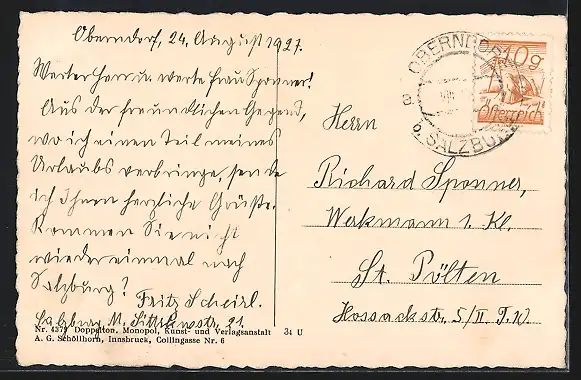 Oberndorf, 24. August 1927.
Werter Herr u. werte Frau Sponner!
Aus der freundlichen Gegend,
wo ich einen Teil meines
Urlaubs verbringe, sende
ich Ihnen herzliche Grüße.
Kommen Sie nicht
wieder einmal nach
Salzburg?
Fritz Scheirl.
Salzburg, M. 21.
Nr. 437 Doppelton. Monopol, Kunst- und Verlagsanstalt 34 U
A. G. Schöllhorn, Innsbruck, Collingasse Nr. 6
OBERNDORF
SALZBURG
10g
Österreich
Herrn
Richard Sponner,
Werkmann 1. Kl.
St. Pölten
Hossackstr. 5/II T.10.